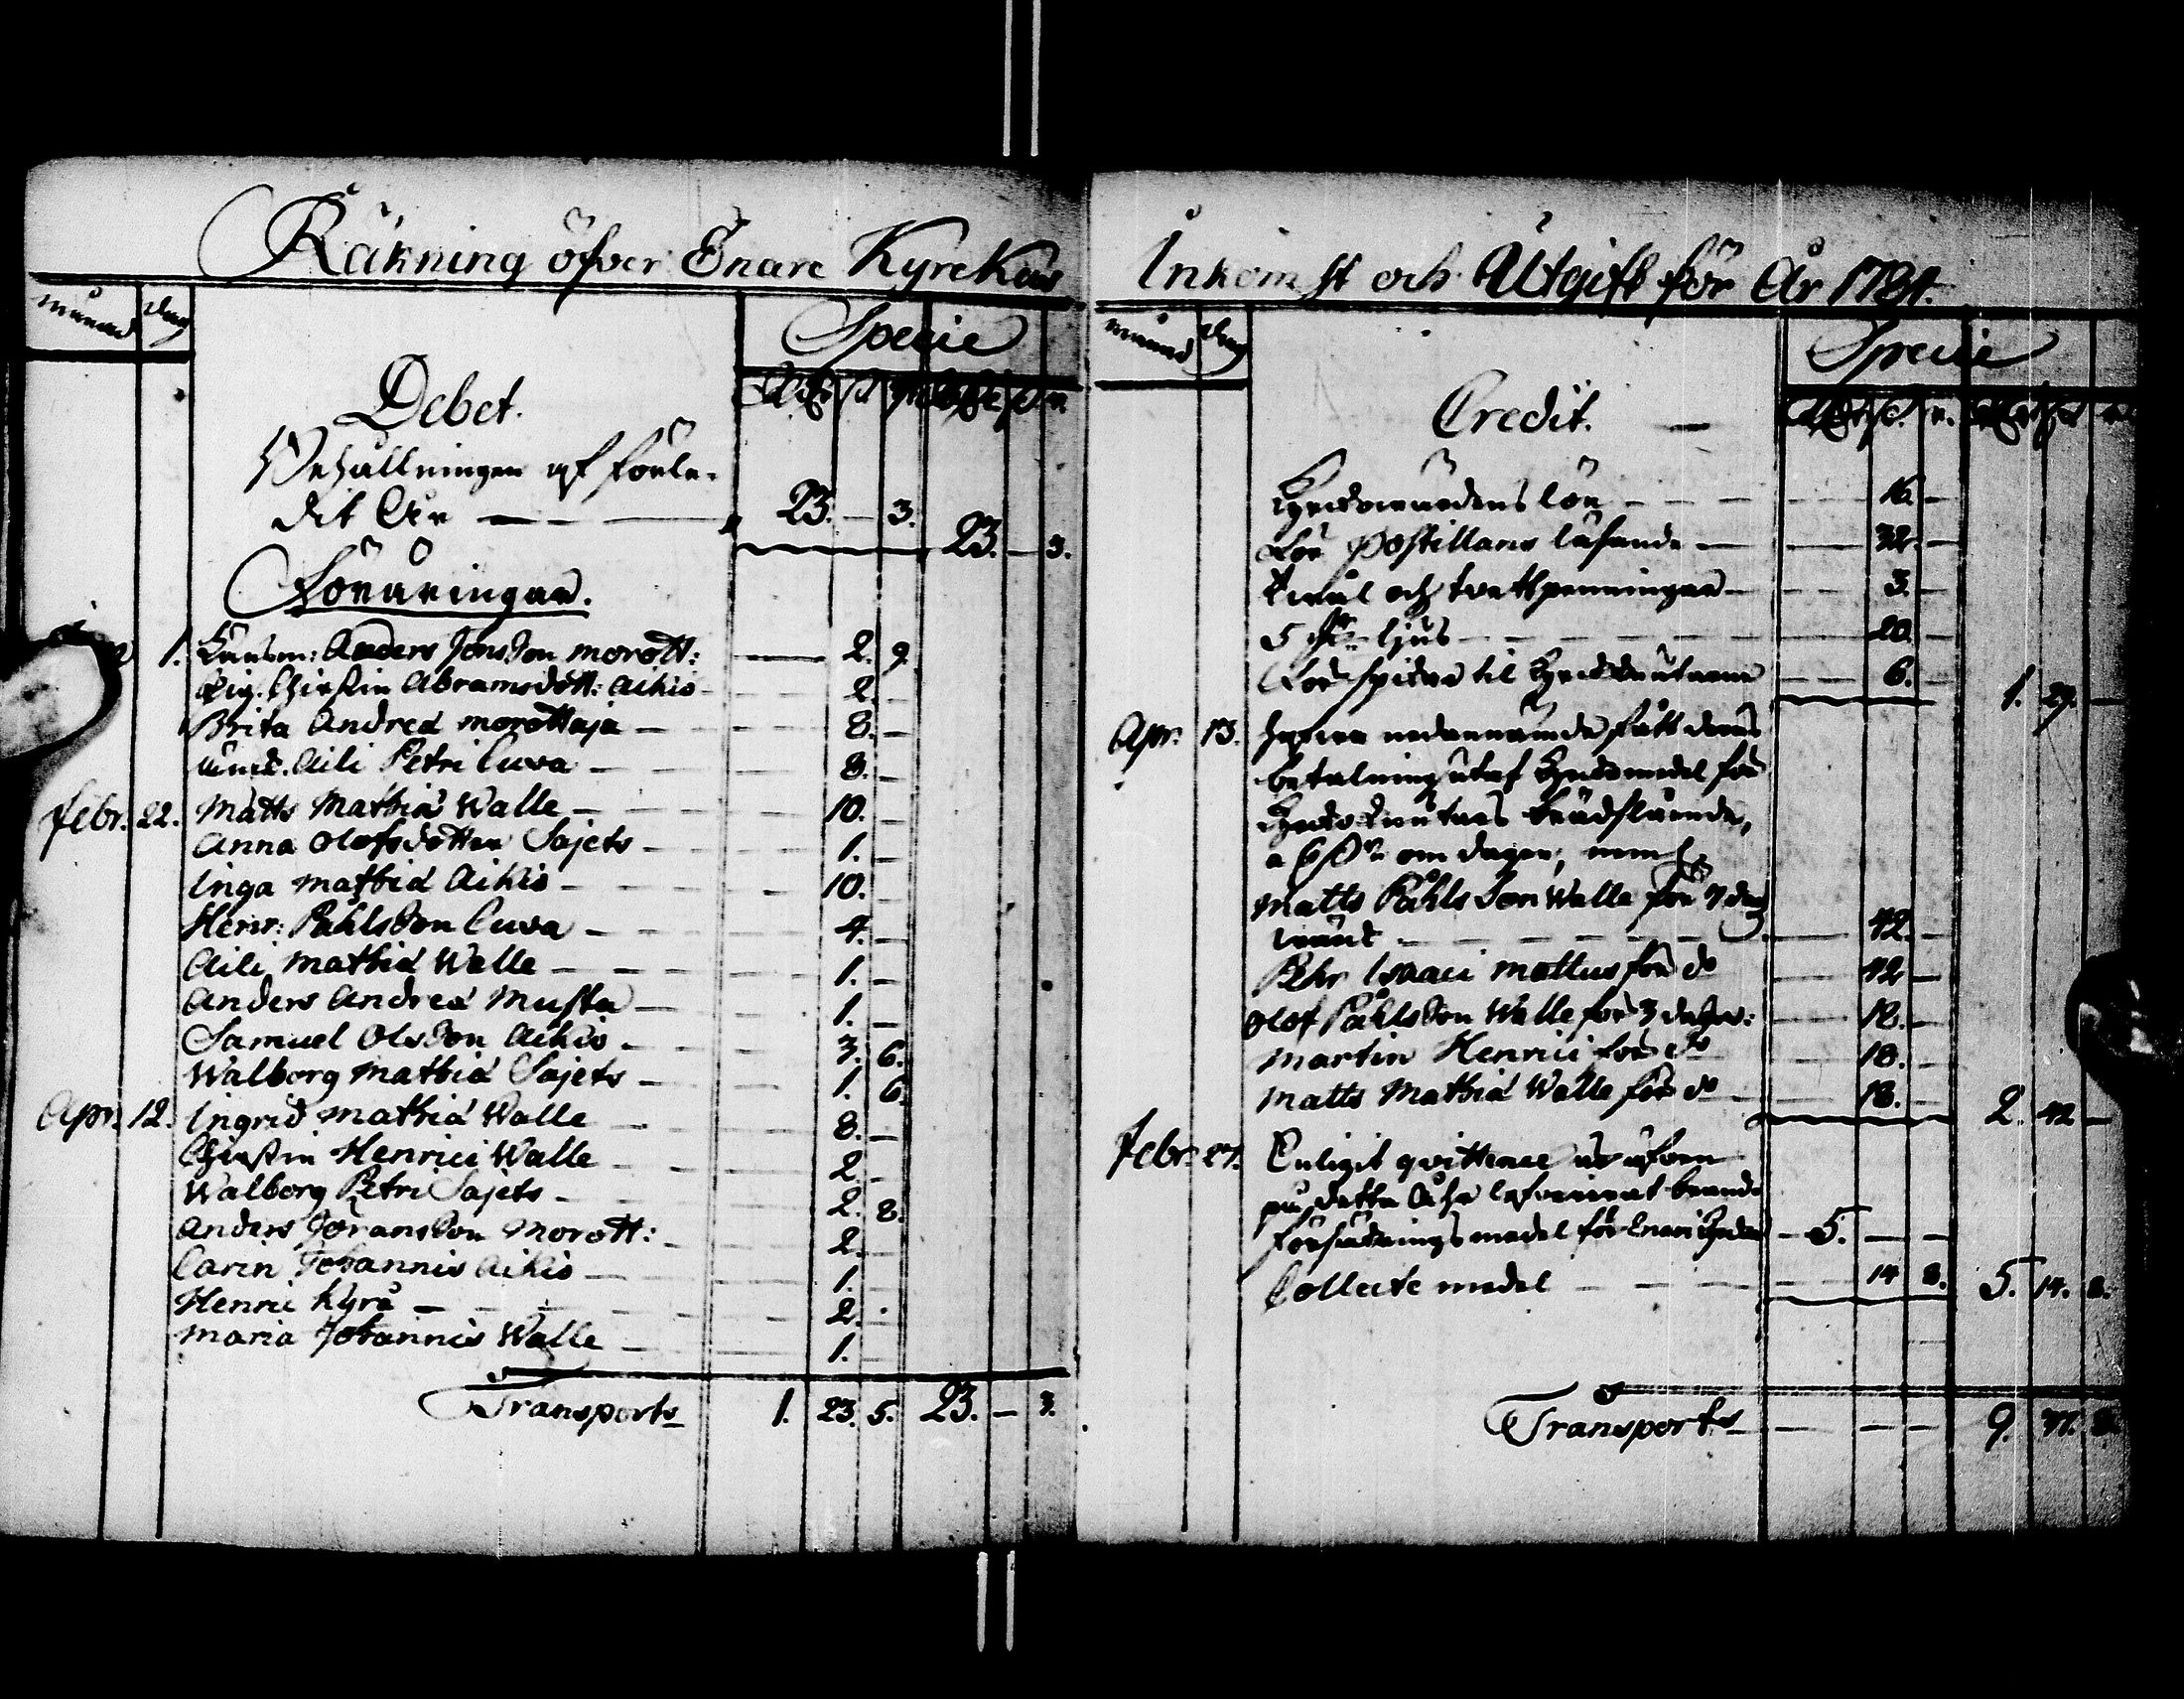 Räkning öfver Enare Kyrekas
månad dag
Specie
Debet.
Behållningen af förle-
dit År — 23. — 3. 23. — 3.
Föräringar.
1. Länsm: Anders Jonsson Morott: — 2. 9.
Pig. Chirstin Abramsdott: Aikio — 2. —
Brita Andreæ Morottaja — 8. —
Aili Petri Cuva — 8. —
Febr. 22. Matts Mathiæ Walle — 10. —
Anna Olofsdotter Sajets — 1. —
Inga Mathiæ Aikio — 10. —
Henr: Påhlsson Cuva — 4. —
Aili Mathiæ Walle — 1. —
Anders Andreæ Musta — 1. —
Samuel Olsson Aikio — 3. 6.
Walborg Mathiæ Sajets — 1. 6.
Apr. 12. Ingrid Mathiæ Walle — 8. —
Chirstin Henrici Walle — 2. —
Walborg Petri Sajets — 2. 8.
Anders Joransson Morott: — 2. —
Carin Johannis Aikio — 1. —
Henric Kyrö — 2. —
Maria Johannis Walle — 1. —
Transports 1. 23. 5. 23. — 3.
Inkomst och Utgift för År 1784.
månad dag
Specie
Credit. —
Kyrkovärdens lön — 16. —
För Postillans läsande — 32. —
Tvål och tvättpenningar — 3. —
5 st. ljus — 20 —
För spikar til Kyrkoknutarne — 6. — 1. 29. —
Apr. 13. Hafva nedannämde fått deras
betalning utaf Kyrkomedel för
Kyrkoknutars brädslående,
a 6 s. om dagen, neml.
Matts Påhlsson Walle för 7 dag
— 42. —
Pehr Isaaci Mattus för do — 42 —
Olof Påhlsson Walle för 3 dagar: — 18. —
Martin Henrici för do — 18. —
Matts Mathiæ Walle för do — 18. — 2. 42 —
Febr. 27. Enligit qvittence är äfven
på detta Åhr levererat brand
försäkrings medel för Enare Kyrka — 5. — —
Collecte medel — 14 8. 5. 14. 8.
Transports — — — 9. 37. 8.